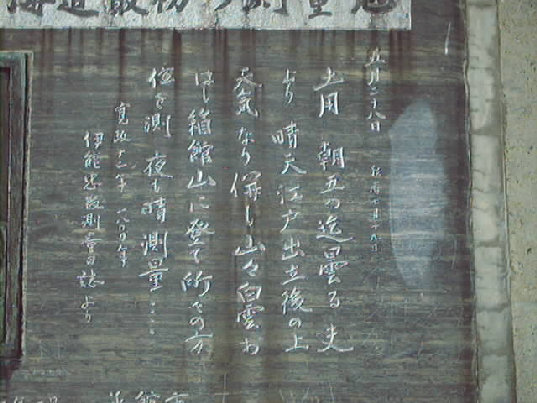 海道最初の測量
五月二十八日 新暦七月十九日
土用 朝五つ迄曇る 夫
より 晴天 江戸出立後の上
天気なり 併し山々白雲お
ほし 箱館山に登て所々の方
位を測 夜も晴 測量……
寛政十二年 一八〇〇年
伊能忠敬測量日誌より